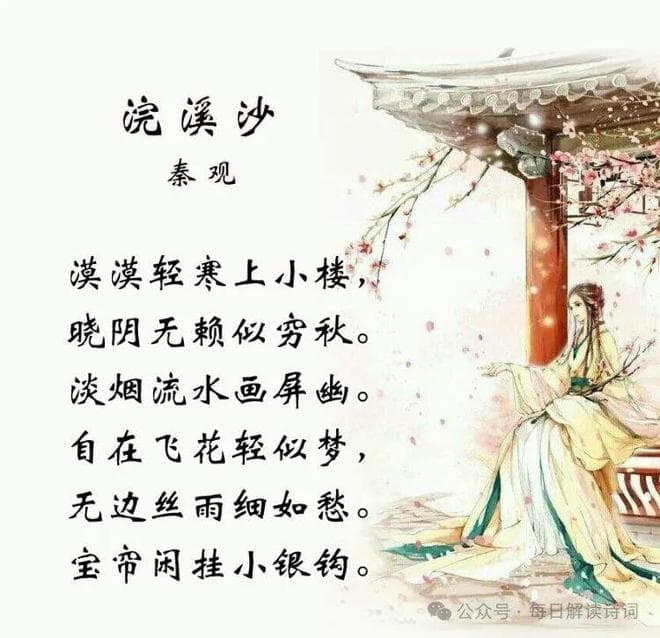 浣溪沙
秦观
漠漠轻寒上小楼，
晓阴无赖似穷秋。
淡烟流水画屏幽。
自在飞花轻似梦，
无边丝雨细如愁。
宝帘闲挂小银钩。
公众号·每日解读诗词